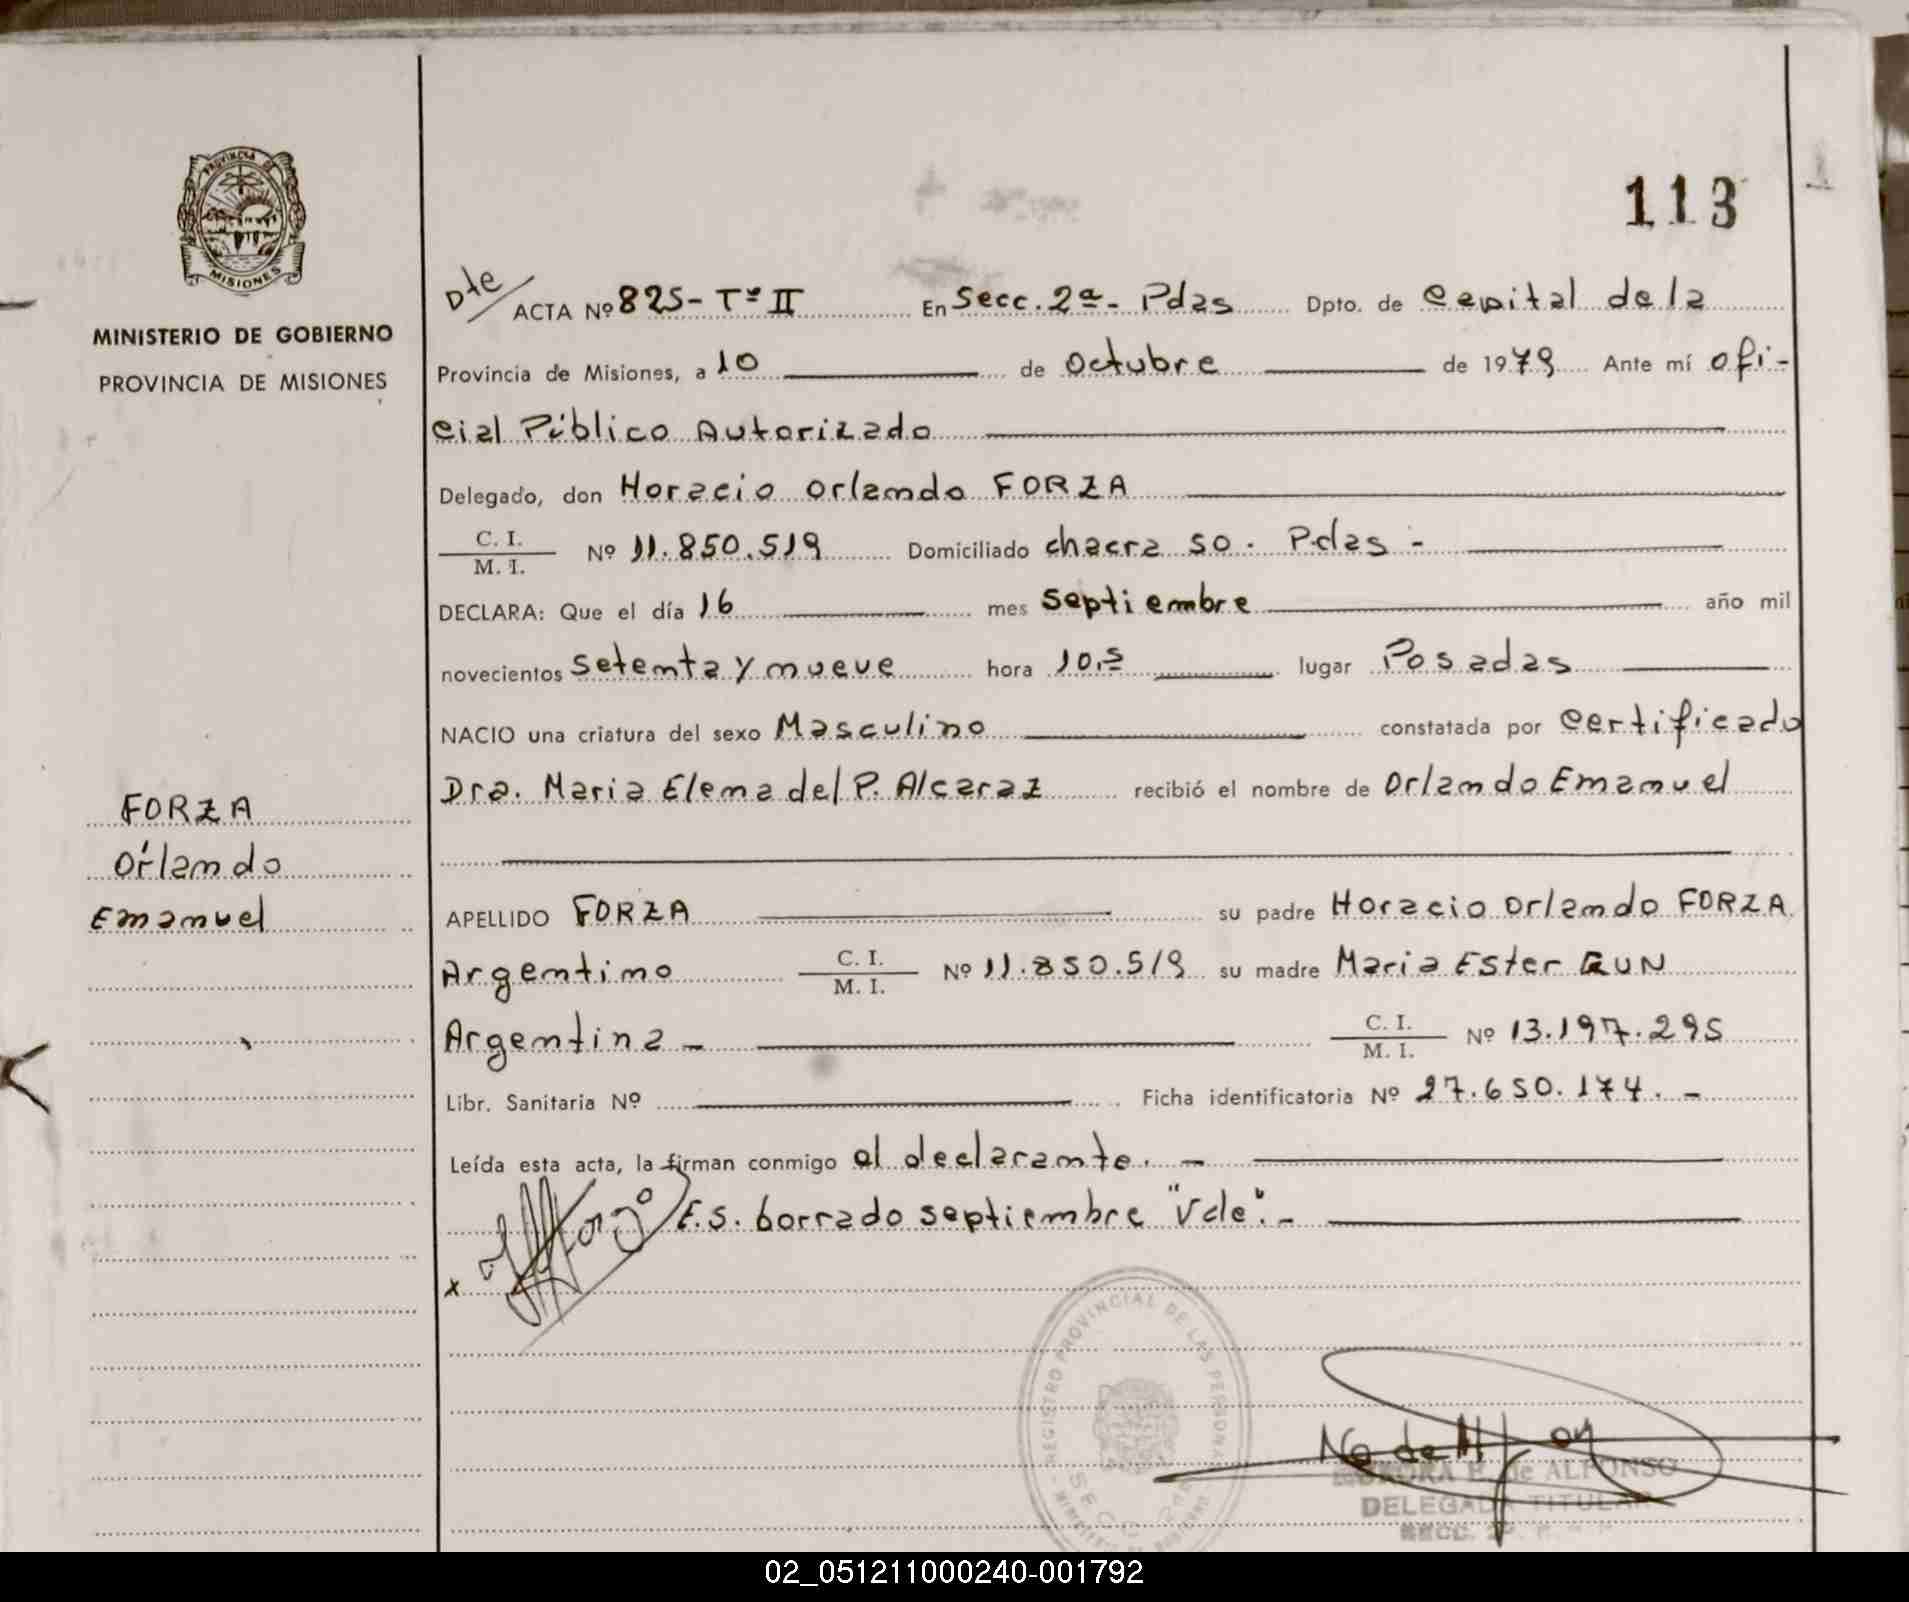 113
PROVINCIA DE
MISIONES
MINISTERIO DE GOBIERNO
PROVINCIA DE MISIONES
FORZA
Orlando
Emanuel
Dte/ ACTA Nº 825- Tº II En Secc. 2ª- Pdas Dpto. de Capital de la
Provincia de Misiones, a 10 de Octubre de 1979 Ante mí ofi-
cial Público Autorizado
Delegado, don Horacio Orlando FORZA
C. I.
M. I. Nº 11.850.519 Domiciliado chacra 50. Pdas -
DECLARA: Que el día 16 mes septiembre año mil
novecientos setenta y nueve hora 10,5 lugar Posadas
NACIO una criatura del sexo Masculino constatada por certificado
Dra. Maria Elena del P. Alcaraz recibió el nombre de Orlando Emanuel
APELLIDO FORZA su padre Horacio Orlando FORZA
Argentino C. I.
M. I. Nº 11.850.519 su madre Maria Ester RUN
Argentina - C. I.
M. I. Nº 13.197.295
Libr. Sanitaria Nº Ficha identificatoria Nº 27.650.174. -
Leída esta acta, la firman conmigo el declarante. -
E.s. borrado septiembre "Vale". -
x
REGISTRO PROVINCIAL DE LAS PERSONAS
SECC.
de ALFONSO
DELEGADA TITULAR
SECC. 2ª
02_051211000240-001792